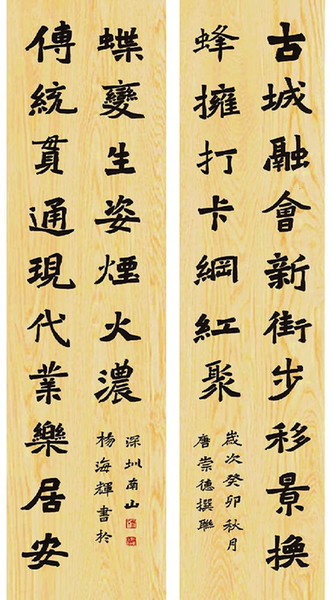 古城融會新街步移景換
蜂擁打卡綱紅聚
歲次癸卯秋月
唐崇德撰聯
傳統貫通現代業樂居安
蝶變生姿煙火濃
楊海輝書於
深圳南山